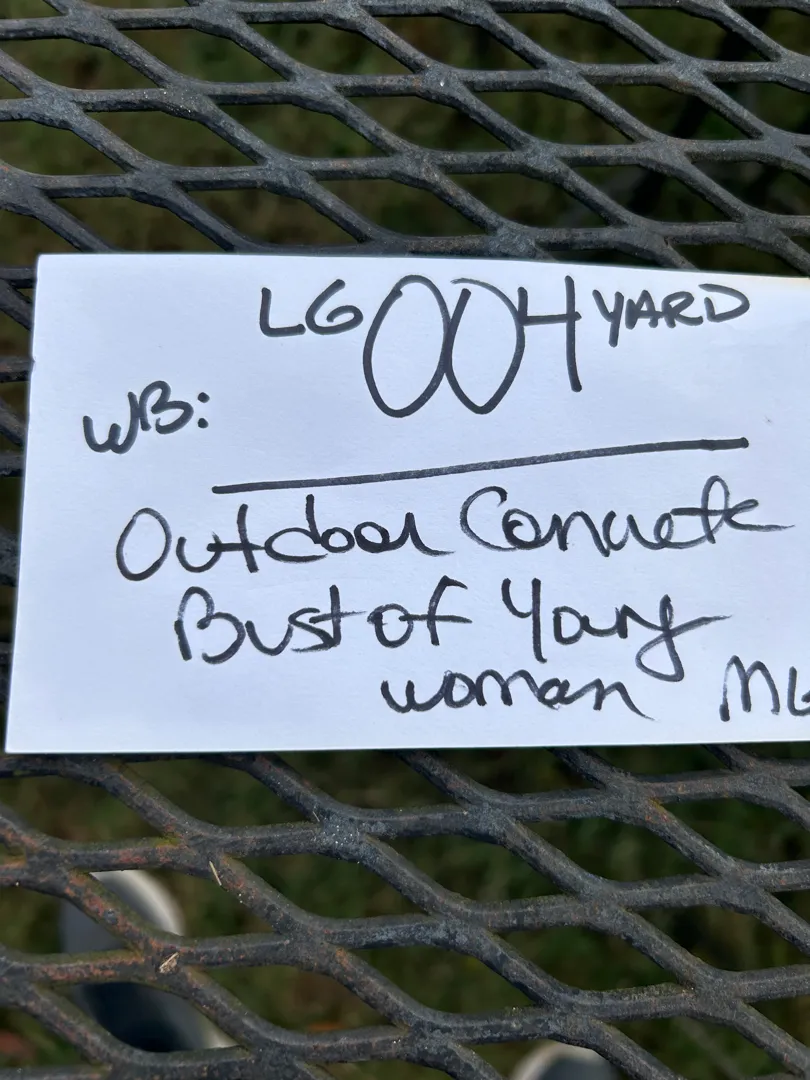 LG 004 YARD
WB:
Outdoor Concrete
Bust of Young
woman